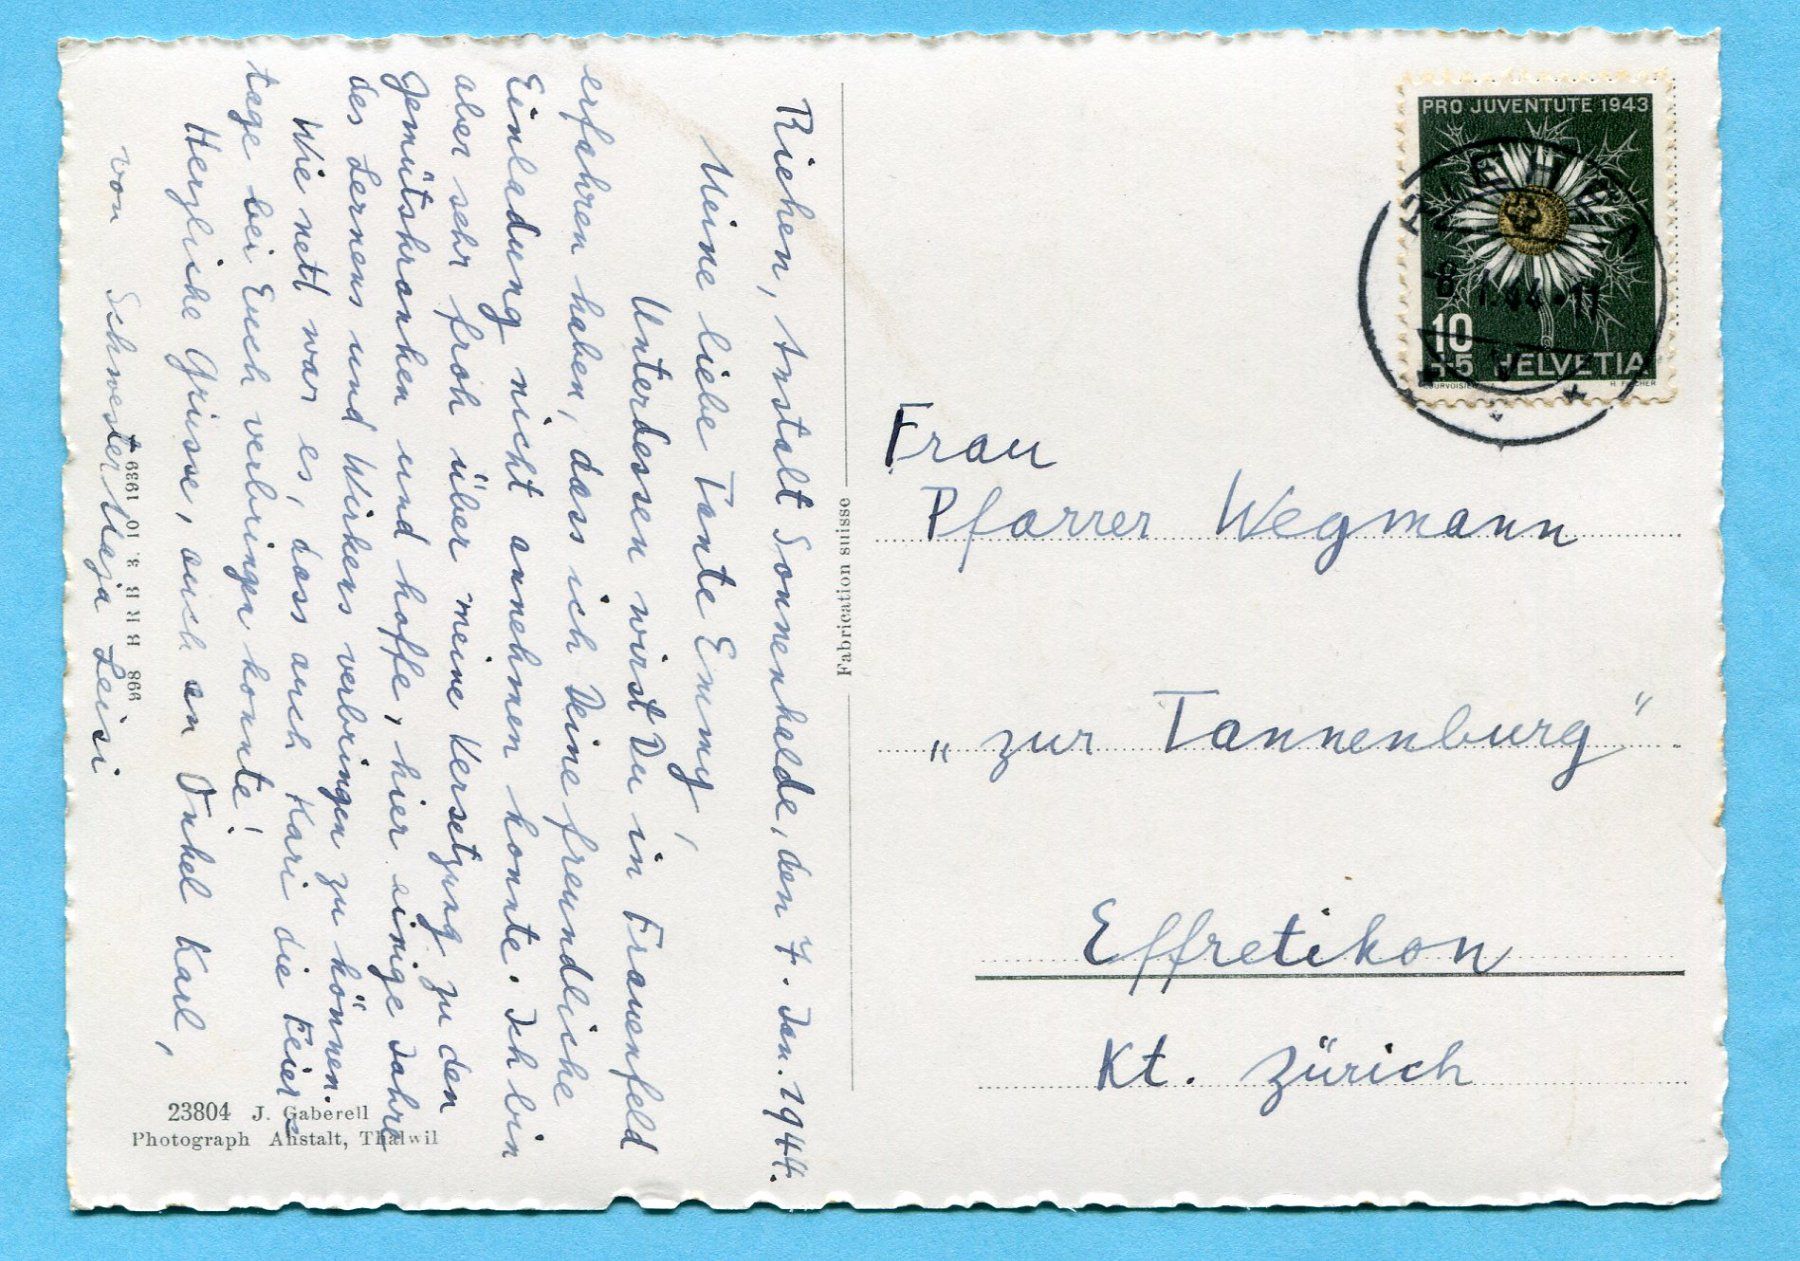 Riehen, Anstalt Sonnenhalde, den 7. Jan. 1944.
Meine liebe Tante Emmy!
Unterdessen wirst Du in Frauenfeld
erfahren haben, dass ich Deine freundliche
Einladung nicht annehmen konnte. Ich bin
aber sehr froh über meine Versetzung zu den
Gemütskranken und hoffe, hier einige Jahre
des Lernens und Wirkens verbringen zu können.
Wie nett war es, dass auch Kari die Feier-
tage bei Euch verbringen konnte!
Herzliche Grüsse, auch an Onkel Karl,
von Schwester Maja Leisi
998 B R B 3. 10. 1939
23804 J. Gaberell
Photograph Anstalt, Thalwil
Fabrication suisse
PRO JUVENTUTE 1943
RIEHEN
8. I. 44-11
10
+5 HELVETIA
COURVOISIER
H. FISCHER
Frau
Pfarrer Wegmann
„zur Tannenburg"
Effretikon
Kt. Zürich